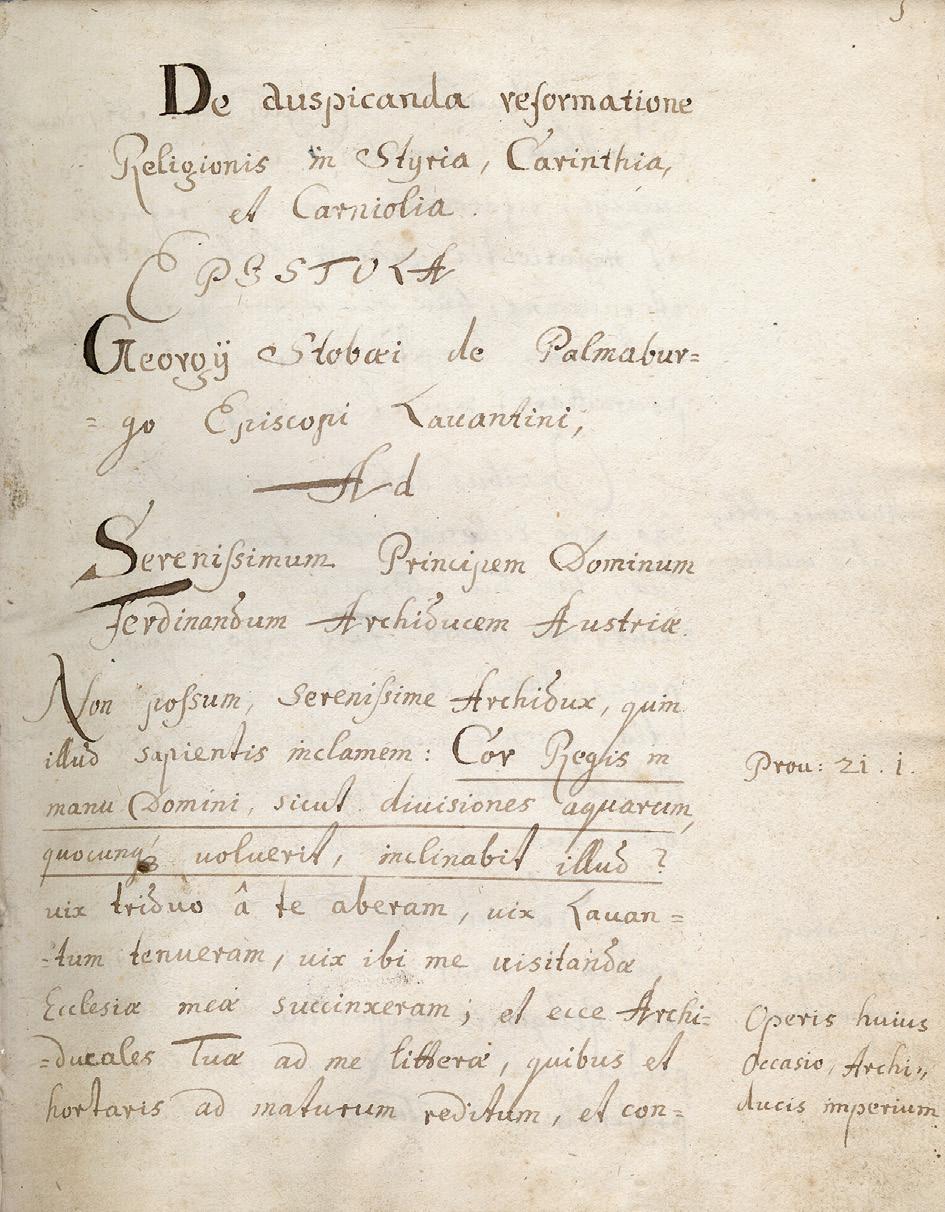 5
De auspicanda reformatione
Religionis in Styria, Carinthia,
et Carniolia.
EPISTOLA
Georgÿ Stobæi de Palmabur=
=go Episcopi Lauantini,
Ad
Sereniſsimum Principem Dominum
Ferdinandum Archiducem Austriæ.
Non poſsum, Sereniſsime Archidux, quin
illud sapientis inclamem: Cor Regis in
Prou: 21. 1.
manu Domini, sicut diuisiones aquarum,
quocunqꝫ uoluerit, inclinabit illud?
uix triduo â te aberam, uix Lauan=
=tum tenueram, uix ibi me uisitandæ
Ecclesiæ meæ succinxeram; et ecce Archi=
=ducales Tuæ ad me litteræ, quibus et
hortaris ad maturum reditum, et con=
Operis huius
Occasio, Archi,,
ducis imperium